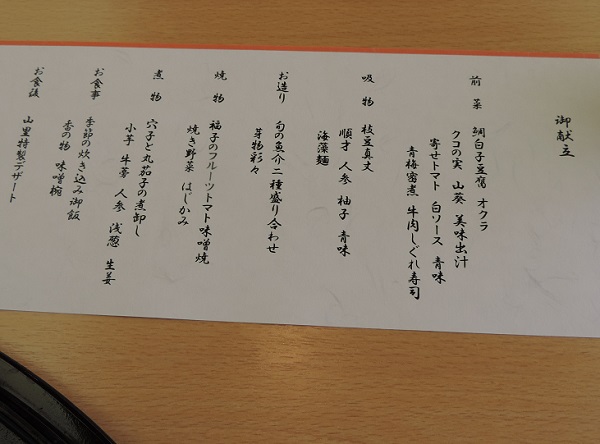 御献立
前菜 鯛白子豆腐 オクラ
クコの実 山葵 美味出汁
寄せトマト 白ソース 青味
青梅蜜煮 牛肉しぐれ寿司
吸物 枝豆真丈
順才 人参 柚子 青味
海藻麺
お造り 旬の魚介二種盛り合わせ
芽物彩々
焼物 福子のフルーツトマト味噌焼
焼き野菜 はじかみ
煮物 穴子と丸茄子の煮卸し
小芋 牛蒡 人参 浅葱 生姜
お食事 季節の炊き込み御飯
香の物 味噌椀
お食後 山里特製デザート